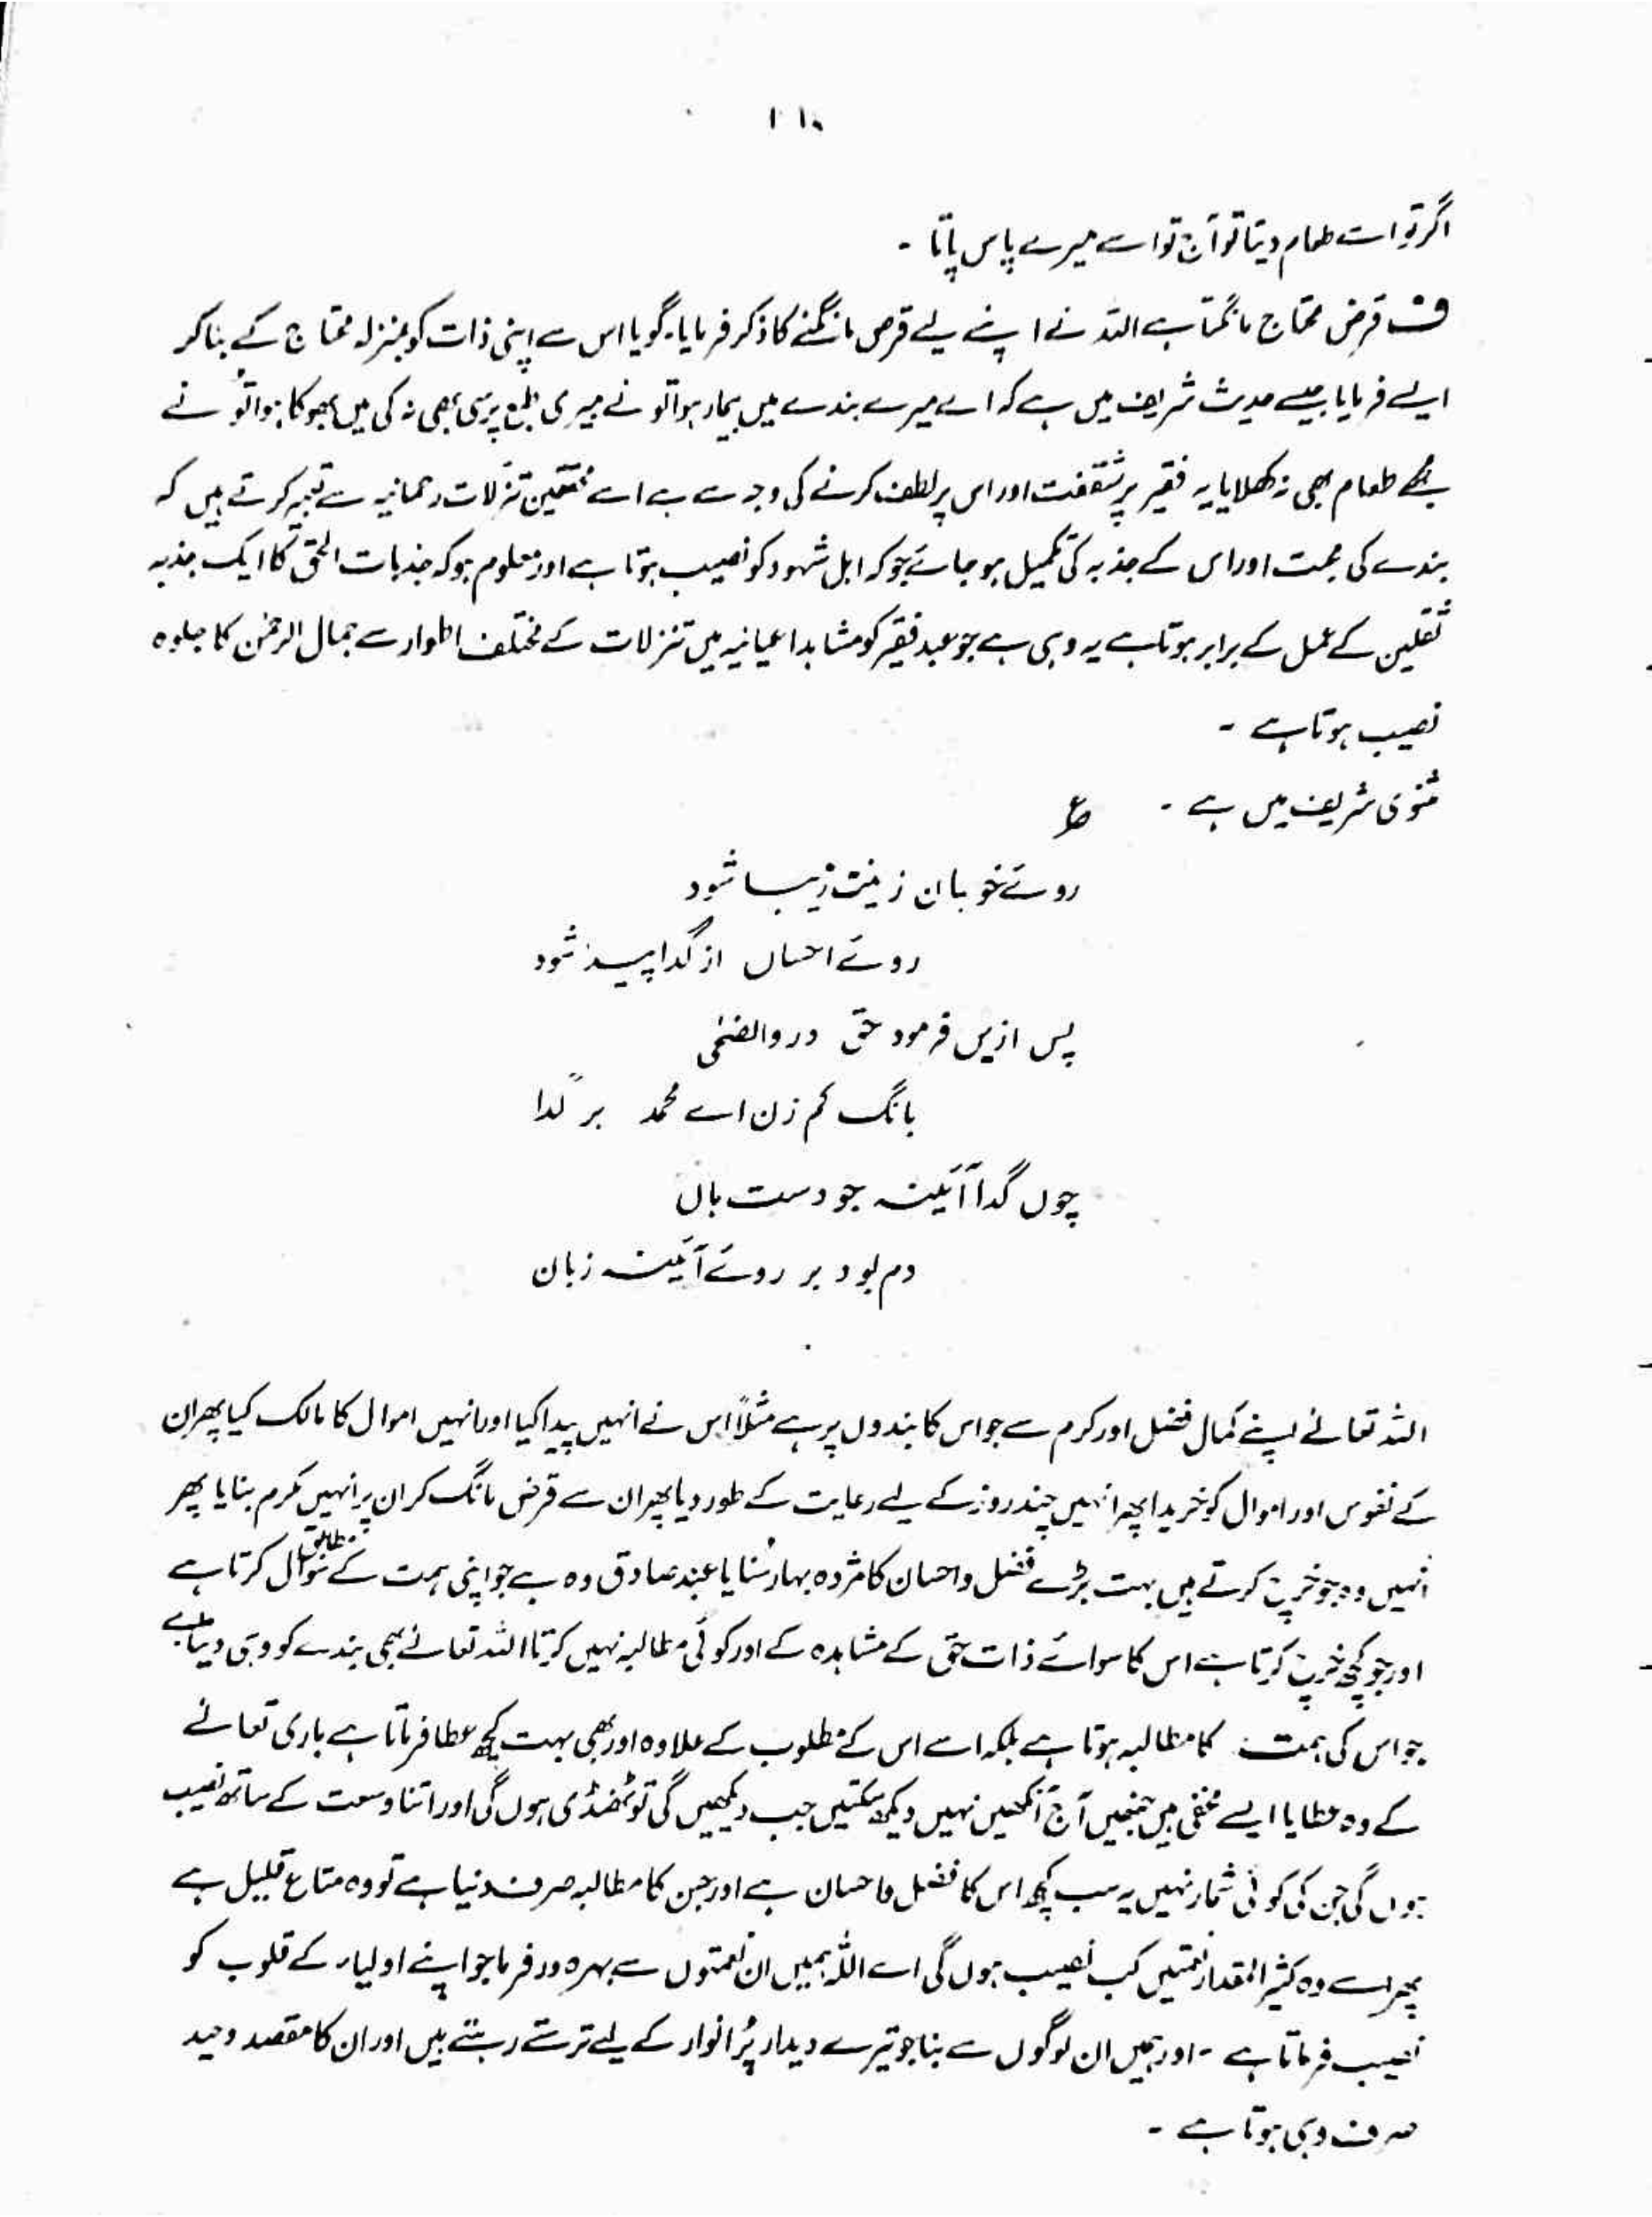 ۱۱۰
اگر تو اسے طعام دیتا تو آج تو اسے میرے پاس پاتا ۔
ف قرض محتاج مانگتا ہے اللہ نے اپنے لیے قرض مانگنے کا ذکر فرمایا۔ گویا اس سے اپنی ذات کو بمنزلہ محتاج کے بنا کر
ایسے فرمایا جیسے حدیث شریف میں ہے کہ اے میرے بندے میں بیمار ہوا تو نے میری طبع پرسی بھی نہ کی میں بھوکا ہوا تُو نے
مجھے طعام بھی نہ کھلایا یہ فقیر پر شفقت اور اس پر لطف کرنے کی وجہ سے ہے اسے محققین تنزلات رحمانیہ سے تعبیر کرتے ہیں کہ
بندے کی محبت اور اس کے جذبہ کی تکمیل ہو جائے جو کہ اہل شہود کو نصیب ہوتا ہے اور معلوم ہو کہ جذبات الحق کا ایک جذبہ
ثقلین کے عمل کے برابر ہوتا ہے یہ وہی ہے جو عبد فقیر کو مشاہدا عیانیہ میں تنزلات کے مختلف اطوار سے جمال الرحمٰن کا جلوہ
نصیب ہوتا ہے ۔
مثنوی شریف میں ہے ۔ ؏
روئے خوبان زینت زیبا شود
روئے احسان از گدا پیدا شود
پس ازیں فرمود حق در والضحیٰ
بانگ کم زن اے محمد بر گدا
چوں گدا آئینہ جودست ہاں
دم بود بر روئے آئینہ زیان
اللہ تعالےٰ اپنے کمال فضل اور کرم سے جو اس کا بندوں پر ہے مثلاً اس نے انہیں پیدا کیا اور انہیں اموال کا مالک کیا پھر ان
کے نفوس اور اموال کو خریدا پھر انہیں چند روز کے لیے رعایت کے طور دیا پھر ان سے قرض مانگ کر ان پر انہیں مکرم بنایا پھر
انہیں وہ جو خرچ کرتے ہیں بہت بڑے فضل و احسان کا مژدہ بہار سُنایا عبد صادق وہ ہے جو اپنی ہمت کے مطابق سوال کرتا ہے
اور جو کچھ خرچ کرتا ہے اس کا سوائے ذات حق کے مشاہدہ کے اور کوئی مطالبہ نہیں کرتا اللہ تعالےٰ بھی بندے کو وہی دیتا ہے
جو اس کی ہمت کا مطالبہ ہوتا ہے بلکہ اسے اس کے مطلوب کے علاوہ اور بھی بہت کچھ عطا فرماتا ہے باری تعالےٰ
کے وہ عطایا ایسے مخفی ہیں جنہیں آج آنکھیں نہیں دیکھ سکتیں جب دیکھیں گی تو ٹھنڈی ہوں گی اور اتنا وسعت کے ساتھ نصیب
ہوں گی جن کی کوئی شمار نہیں یہ سب کچھ اس کا فضل و احسان ہے اور جن کا مطالبہ صرف دنیا ہے تو وہ متاع قلیل ہے
پھر اسے وہ کثیر المقدار نعمتیں کب نصیب ہوں گی اے اللہ ہمیں ان نعمتوں سے بہرہ ور فرما جو اپنے اولیاء کے قلوب کو
نصیب فرماتا ہے ۔ اور ہمیں ان لوگوں سے بنا جو تیرے دیدار پُر انوار کے لیے ترستے رہتے ہیں اور ان کا مقصد وحید
صرف وہی ہوتا ہے ۔